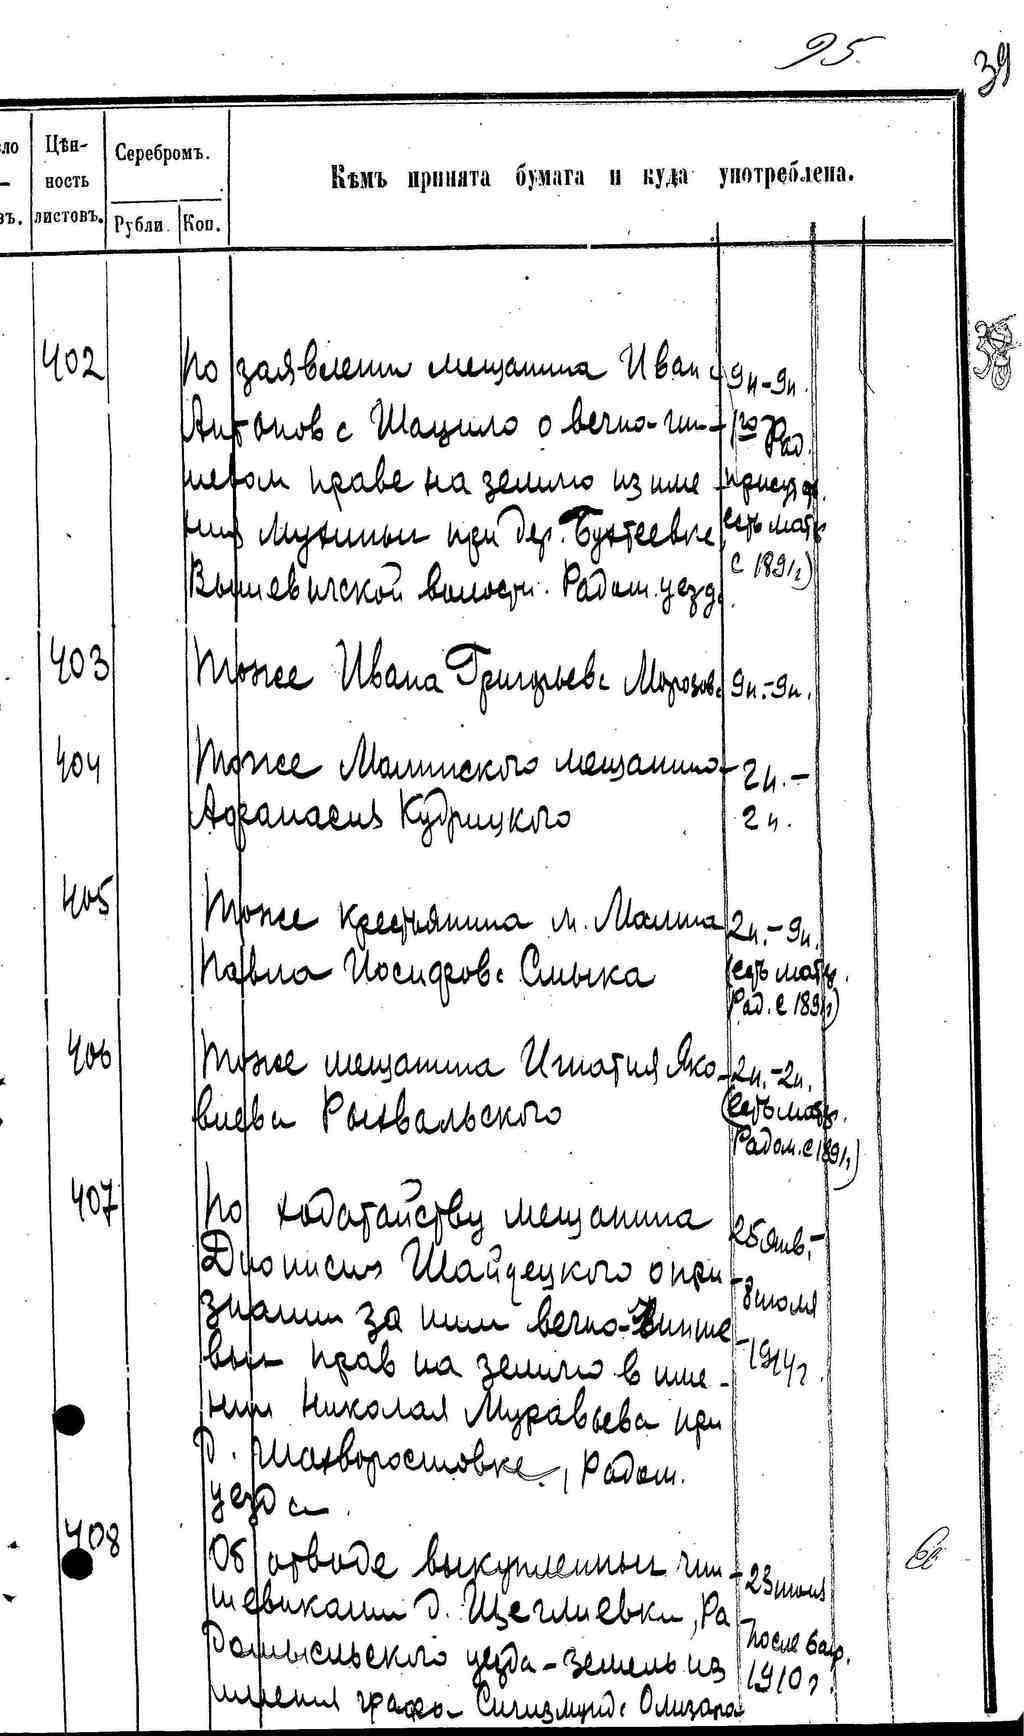 95.
39
ло
Цѣн-
ность
листовъ.
Серебромъ.
въ.
Рубли.
Коп.
Кѣмъ принята бумага и куда употреблена.
402
По заявлении мещанина Ивана
Антонова Шацило о вечно-чин-
шевом праве на землю из име-
ния при дер. Бухтеевке
Вышевичской волости. Радом. уезда
9н-9н.
Рад.
есть мат.
с 1891г)
403
Тоже Ивана Григорьева Морозова
9н.-9н.
404
Тоже Малинского мещанина
Афанасия Кудрицкого
2н.-
2н.
405
Тоже крестьянина м. Малина
Павла Иосифова Смыка
2н.-9н.
(есть мат.
Рад. с 1891г)
406
Тоже мещанина Игнатия Яко-
влева Рыхвальского
2н.-2н.
(есть мат.
Радом. с 1891г)
407
По ходатайству мещанина
Дионисия Шайдецкого о при-
знании за ним вечно-чинше
вых прав на землю в име-
нии Николая Муравьева при
д. Шахворостовке, Радом.
уезда
25 янв.-
8 июля
1914г.
408
Об отводе выкупленных чин-
шевиками д. Щеглиевки, Ра
домысльского уезда - земель из
имения графа Сигизмунда Олизара
23 июля
После
1910г.